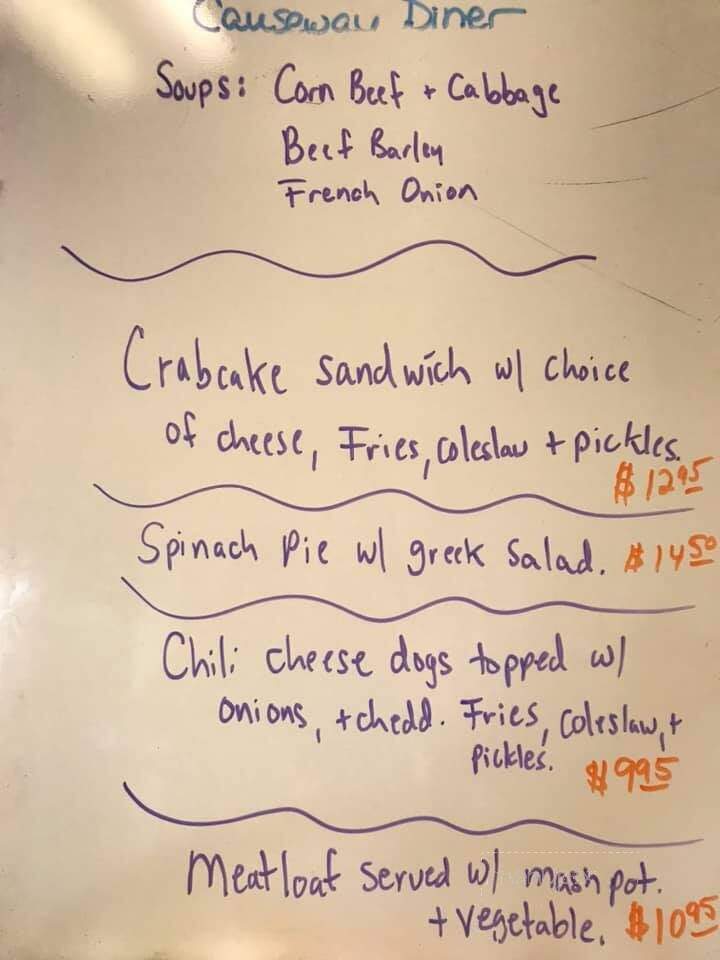 Causeway Diner
Soups: Corn Beef + Cabbage
Beef Barley
French Onion
Crabcake sandwich w/ choice
of cheese, Fries, coleslaw + pickles.
$12.95
Spinach Pie w/ greek Salad. $14.50
Chili cheese dogs topped w/
onions, + chedd. Fries, coleslaw, +
pickles. $9.95
Meatloaf served w/ mash pot.
+ vegetable. $10.95